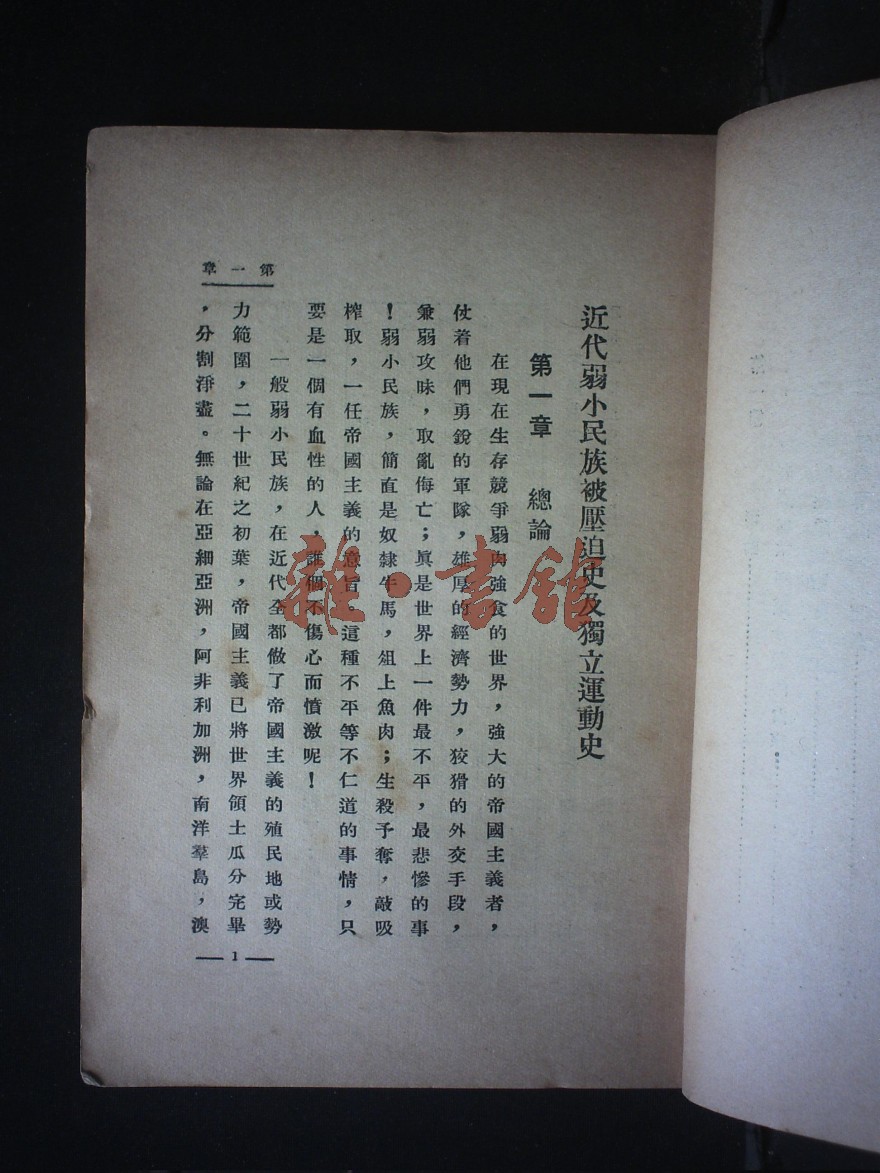 近代弱小民族被壓迫史及獨立運動史
第一章 總論
在現在生存競爭弱肉強食的世界，強大的帝國主義者，
仗着他們勇銳的軍隊，雄厚的經濟勢力，狡猾的外交手段，
兼弱攻昧，取亂侮亡；眞是世界上一件最不平，最悲慘的事
！弱小民族，簡直是奴隸牛馬，俎上魚肉；生殺予奪，敲吸
榨取，一任帝國主義的意旨，這種不平等不仁道的事情，只
要是一個有血性的人，誰個不傷心而憤激呢！
一般弱小民族，在近代全都做了帝國主義的殖民地或勢
力範圍，二十世紀之初葉，帝國主義已將世界領土瓜分完畢
，分割淨盡。無論在亞細亞洲，阿非利加洲，南洋羣島，澳
第一章
1
雜·書館